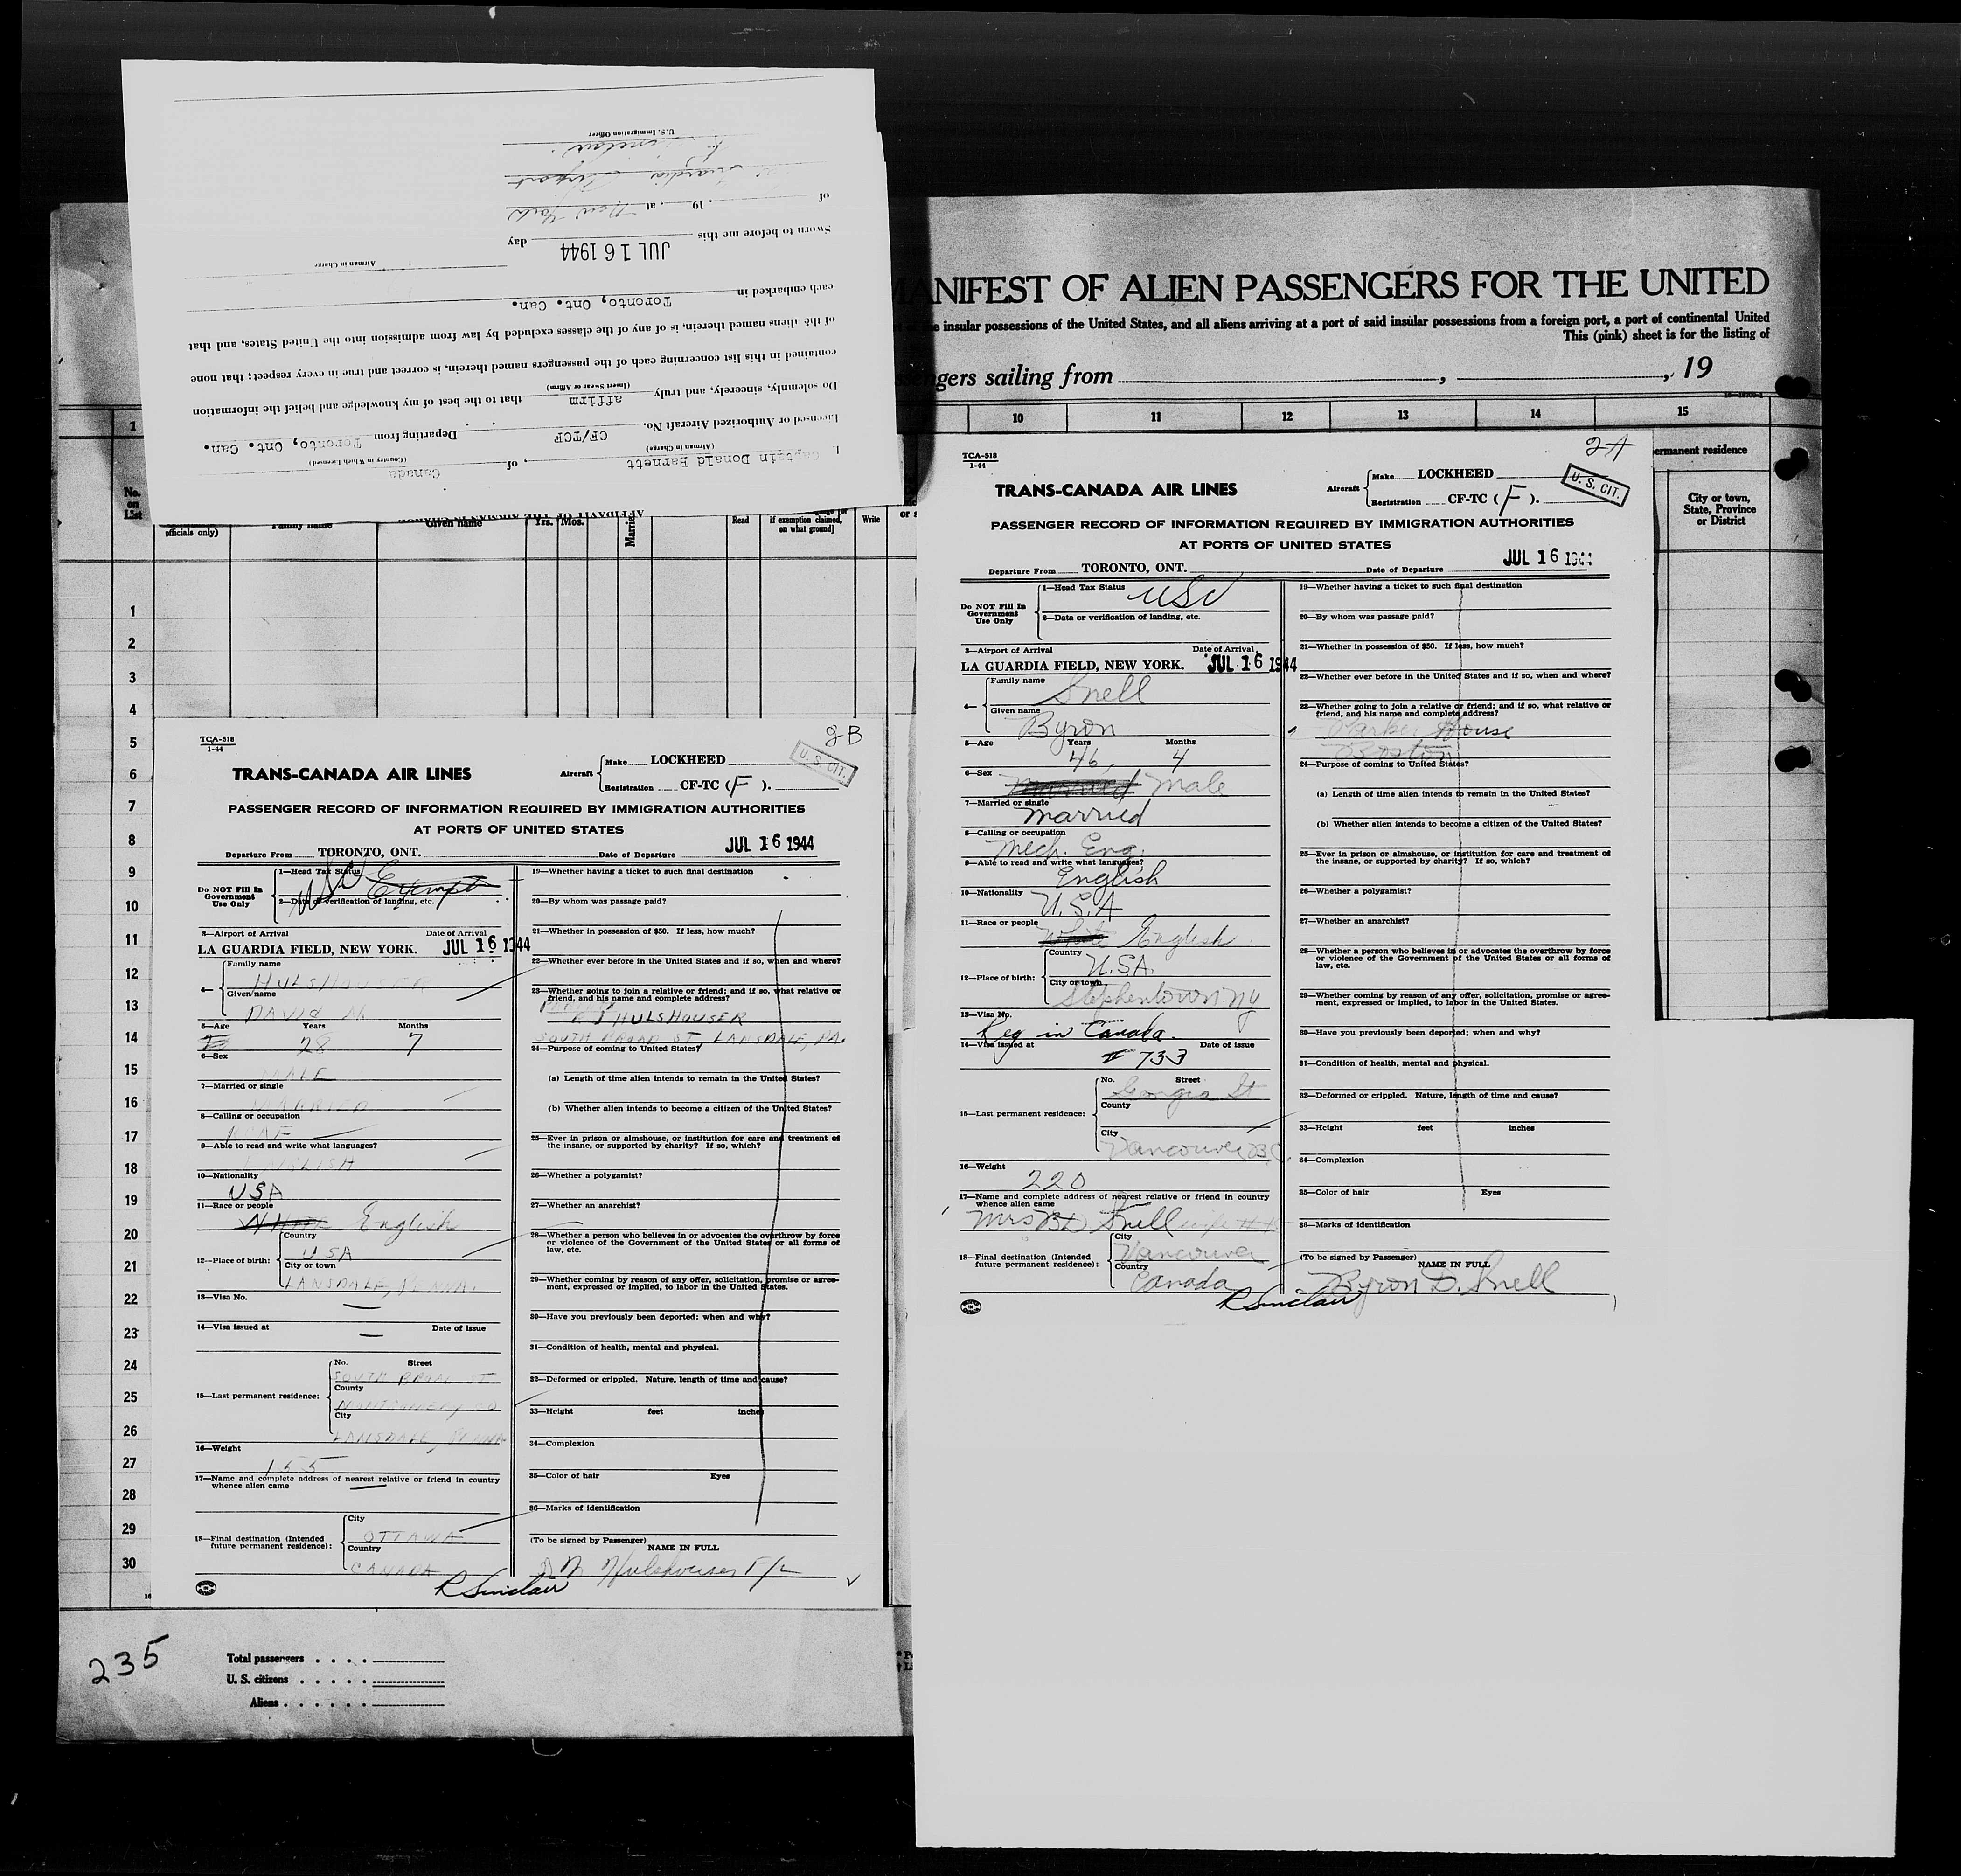 AFFIDAVIT OF THE AIRMAN IN CHARGE
I, Captain Donald Barnett, of Canada
(Airman in Charge) (Country in Which Licensed)
Licensed or Authorized Aircraft No. CF/TCF Departing from Toronto, Ont. Can.
Do solemnly, sincerely, and truly affirm that to the best of my knowledge and belief the information
(Insert Swear or Affirm)
contained in this list concerning each of the passengers named therein, is correct and true in every respect; that none
of the aliens named therein, is of any of the classes excluded by law from admission into the United States, and that
each embarked in Toronto, Ont. Can.
Airman in Charge
Sworn to before me this JUL 16 1944 day
of , 19 , at New York
Guardia Airport
Sinclair
U.S. Immigration Officer
MANIFEST OF ALIEN PASSENGERS FOR THE UNITED
insular possessions of the United States, and all aliens arriving at a port of said insular possessions from a foreign port, a port of continental United
This (pink) sheet is for the listing of
sailing from , , 19
1 10 11 12 13 14 15
permanent residence
No. on List
officials only) Family name Given name Yrs. Mos. Married Read if exemption claimed, on what ground] Write
City or town, State, Province or District
1
2
3
4
5
6
7
8
9
10
11
12
13
14
15
16
17
18
19
20
21
22
23
24
25
26
27
28
29
30
235
Total passengers
U. S. citizens
Aliens
2B
TCA-518
1-44
U. S. CIT.
TRANS-CANADA AIR LINES
Aircraft Make LOCKHEED
Registration CF-TC ( F ).
PASSENGER RECORD OF INFORMATION REQUIRED BY IMMIGRATION AUTHORITIES
AT PORTS OF UNITED STATES
Departure From TORONTO, ONT. Date of Departure JUL 16 1944
Do NOT Fill In Government Use Only
1—Head Tax Status USC Exempt
2—Date or verification of landing, etc.
3—Airport of Arrival Date of Arrival
LA GUARDIA FIELD, NEW YORK. JUL 16 1944
4— Family name HULSHOUSER
Given name DAVID M.
5—Age Years 28 Months 7
6—Sex MALE
7—Married or single MARRIED
8—Calling or occupation RCAF
9—Able to read and write what languages? ENGLISH
10—Nationality USA
11—Race or people White English
12—Place of birth: Country USA
City or town LANSDALE, PENNA.
13—Visa No. —
14—Visa issued at — Date of issue
15—Last permanent residence: No. Street SOUTH BROAD ST
County MONTGOMERY CO
City LANSDALE, PENNA
16—Weight 155
17—Name and complete address of nearest relative or friend in country whence alien came —
18—Final destination (Intended future permanent residence): City OTTAWA
Country CANADA
R Sinclair
19—Whether having a ticket to such final destination
20—By whom was passage paid?
21—Whether in possession of $50. If less, how much?
22—Whether ever before in the United States and if so, when and where?
23—Whether going to join a relative or friend; and if so, what relative or friend, and his name and complete address?
R J HULSHOUSER
SOUTH BROAD ST, LANSDALE, PA.
24—Purpose of coming to United States?
(a) Length of time alien intends to remain in the United States?
(b) Whether alien intends to become a citizen of the United States?
25—Ever in prison or almshouse, or institution for care and treatment of the insane, or supported by charity? If so, which?
26—Whether a polygamist?
27—Whether an anarchist?
28—Whether a person who believes in or advocates the overthrow by force or violence of the Government of the United States or all forms of law, etc.
29—Whether coming by reason of any offer, solicitation, promise or agreement, expressed or implied, to labor in the United States.
30—Have you previously been deported; when and why?
31—Condition of health, mental and physical.
32—Deformed or crippled. Nature, length of time and cause?
33—Height feet inches
34—Complexion
35—Color of hair Eyes
36—Marks of identification
(To be signed by Passenger) NAME IN FULL
D M Hulshouser F/L
2A
TCA-518
1-44
U. S. CIT.
TRANS-CANADA AIR LINES
Aircraft Make LOCKHEED
Registration CF-TC ( F ).
PASSENGER RECORD OF INFORMATION REQUIRED BY IMMIGRATION AUTHORITIES
AT PORTS OF UNITED STATES
Departure From TORONTO, ONT. Date of Departure JUL 16 1944
Do NOT Fill In Government Use Only
1—Head Tax Status USC
2—Date or verification of landing, etc.
3—Airport of Arrival Date of Arrival
LA GUARDIA FIELD, NEW YORK. JUL 16 1944
4— Family name Snell
Given name Byron
5—Age Years 46 Months 4
6—Sex Married Male
7—Married or single Married
8—Calling or occupation Mech. Eng.
9—Able to read and write what languages? English
10—Nationality U.S.A
11—Race or people White English
12—Place of birth: Country U.S.A.
City or town Stephentown NY
13—Visa No. Reg in Canada.
14—Visa issued at # 733 Date of issue
15—Last permanent residence: No. Street Georgia St
County
City Vancouver B.C.
16—Weight 220
17—Name and complete address of nearest relative or friend in country whence alien came
Mrs BD Snell wife
18—Final destination (Intended future permanent residence): City Vancouver
Country Canada
R Sinclair
19—Whether having a ticket to such final destination
20—By whom was passage paid?
21—Whether in possession of $50. If less, how much?
22—Whether ever before in the United States and if so, when and where?
23—Whether going to join a relative or friend; and if so, what relative or friend, and his name and complete address?
Parker House
Boston
24—Purpose of coming to United States?
(a) Length of time alien intends to remain in the United States?
(b) Whether alien intends to become a citizen of the United States?
25—Ever in prison or almshouse, or institution for care and treatment of the insane, or supported by charity? If so, which?
26—Whether a polygamist?
27—Whether an anarchist?
28—Whether a person who believes in or advocates the overthrow by force or violence of the Government of the United States or all forms of law, etc.
29—Whether coming by reason of any offer, solicitation, promise or agreement, expressed or implied, to labor in the United States.
30—Have you previously been deported; when and why?
31—Condition of health, mental and physical.
32—Deformed or crippled. Nature, length of time and cause?
33—Height feet inches
34—Complexion
35—Color of hair Eyes
36—Marks of identification
(To be signed by Passenger) NAME IN FULL
Byron D. Snell